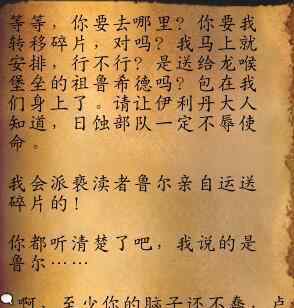 等等，你要去哪里？你要我
转移碎片，对吗？我马上就
安排，行不行？是送给龙喉
堡垒的祖鲁希德吗？包在我
们身上了。请让伊利丹大人
知道，日蚀部队一定不辱使
命。
我会派亵渎者鲁尔亲自运送
碎片的！
你都听清楚了吧，我说的是
鲁尔……
啊，至少你的脑子还不蠢，卢